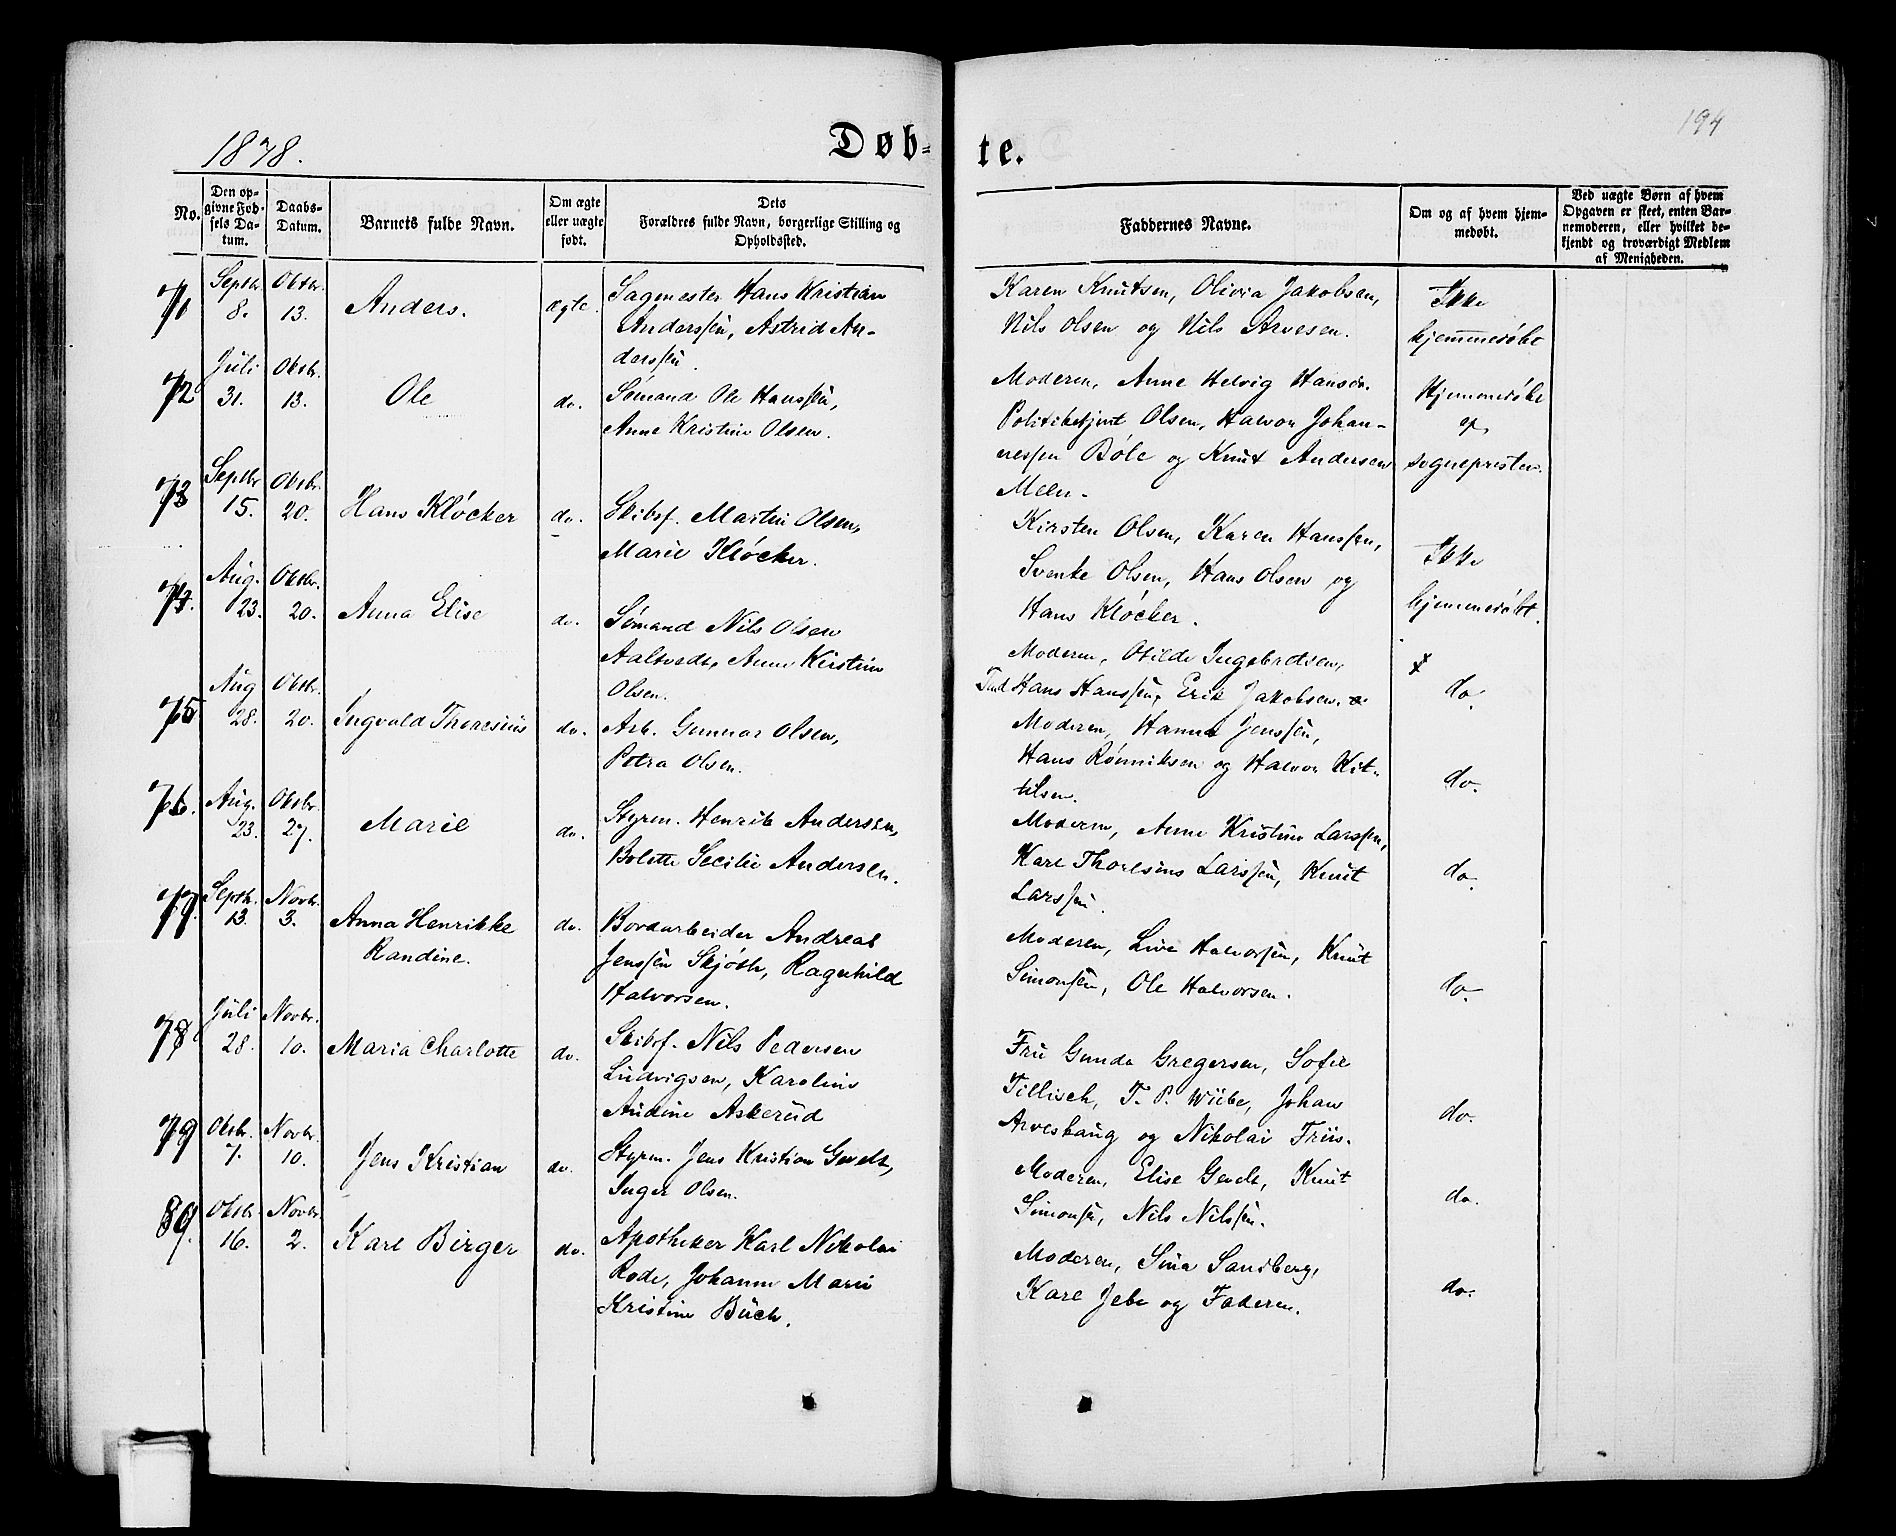 1878.
Døb-
te.
194
No.
Den op-
givne Fød-
sels Da-
tum.
Daabs-
Datum.
Barnets fulde Navn.
Om ægte
eller uægte
født.
Dets
Forældres fulde Navn, borgerlige Stilling og
Opholdssted.
Faddernes Navne.
Om og af hvem hjem-
medøbt.
Ved uægte Børn af hvem
Opgaven er skeet, enten Bar-
nemoderen, eller hvilket be-
kjendt og troværdigt Medlem
af Menigheden.
71 Septbr. 8. Oktbr. 13. Anders. ægte. Sagmester Hans Kristian
Anderssen, Astrid An-
derssen.
Karen Knutsen, Olivia Jakobsen,
Nils Olsen og Nils Arvesen.
Ikke
hjemmedøbt
72 Juli 31. Oktbr. 13. Ole do. Sømand Ole Hanssen,
Anne Kristine Olsen.
Moderen, Anne Helvig Hansen.
Politibetjent Olsen, Halvor Johan-
nessen Bøle og Knut Andersen
Melen.
Hjemmedøbt
af
sognepresten.
73 Septbr 15. Oktbr. 20. Hans Kløcker do. Skibsf. Martin Olsen,
Marie Kløcker.
Kirsten Olsen, Karen Hanssen,
Svenke Olsen, Hans Olsen og
Hans Kløcker.
Ikke
hjemmedøbt.
74. Aug. 23. Oktbr. 20. Anna Elise do. Sømand Nils Olsen
Aaltvedt, Anne Kirstine
Olsen.
Moderen, Otilde Ingebretsen,
Hans Hanssen, Erik Jakobsen.
do.
75 Aug 28. Oktbr. 20. Ingvald Thoresius do. Arb. Gunnar Olsen,
Petra Olsen.
Moderen, Hanna Jenssen,
Hans Rønniksen og Halvor Kit-
tilsen.
do.
76. Aug. 23. Oktbr. 27. Marie do. Styrm. Henrik Andersen,
Bolette Secilie Andersen.
Moderen, Anne Kristine Larssen,
Karl Thorlsens Larssen, Knut
Larssen.
do.
77. Septbr. 13. Novbr. 3. Anna Henrikke
Randine.
do. Bordarbeider Andreas
Jenssen Skjøth, Ragnhild
Halvorsen.
Moderen, Live Halvorsen, Knut
Simonsen, Ole Halvorsen.
do.
78 Juli 28. Novbr. 10. Maria Charlotte do. Skibsf. Nils Pedersen
Ludvigsen, Karoline
Audine Askerud
Fru Gunda Gregersen, Sofie
Tillisch, T. P. Wiibe, Johan
Arveskaug og Nikolai Friis.
do.
79 Oktbr. 7. Novbr. 10. Jens Kristian do. Styrm. Jens Kristian Gendt,
Inger Olsen.
Moderen, Elise Gendt, Knut
Simonsen, Nils Nilssen.
do.
80. Oktbr 16. Novbr 2. Karl Birger do. Apotheker Karl Nikolai
Rode, Johanne Marie
Kristine Buch.
Moderen, Sina Sandberg,
Karl Jebe og Faderen.
do.